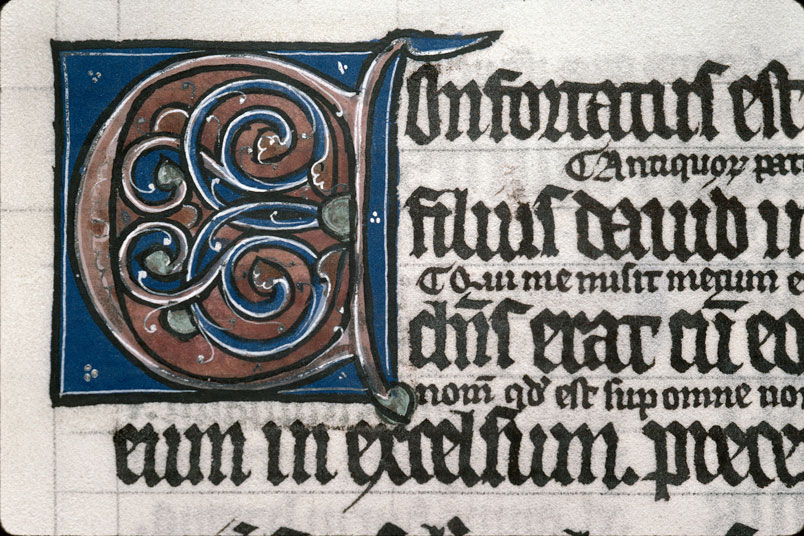 Confortatus est
¶Antiquoꝝ pat
filius dauid i
¶Qui me misit mecum e
dn̄s erat cū eo
nom̄ qd̓ est sup omne no
eum in excelsum. prece